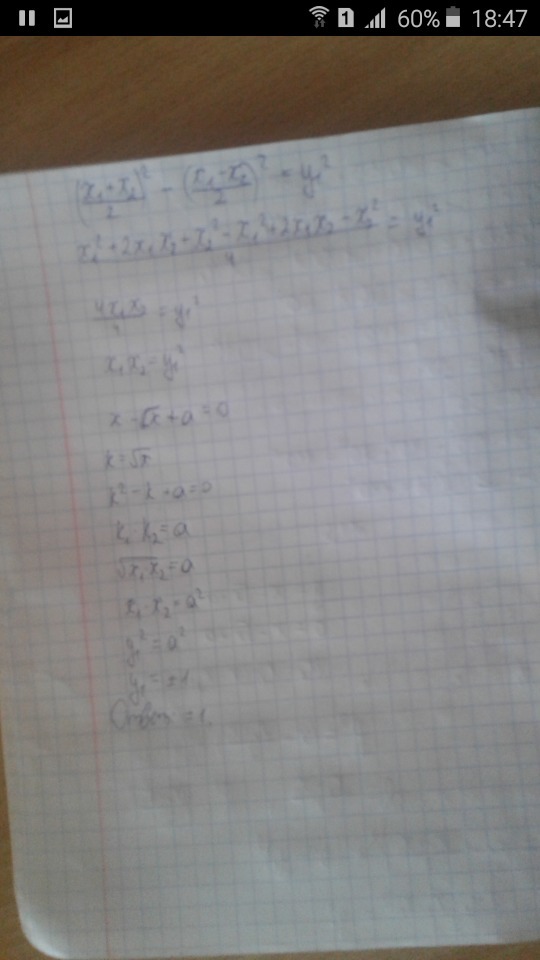 60% 18:47
((x₁+x₂)/2)² - ((x₁-x₂)/2)² = y₁²
(x₁²+2x₁x₂+x₂²-x₁²+2x₁x₂-x₂²)/4 = y₁²
4x₁x₂/4 = y₁²
x₁x₂=y₁²
x-√x+a=0
k=√x
k²-k+a=0
k₁·k₂=a
√x₁x₂=a
x₁·x₂=a²
y₁²=a²